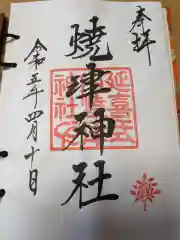 奉拝
焼津神社
令和五年四月十日
延喜式
神社